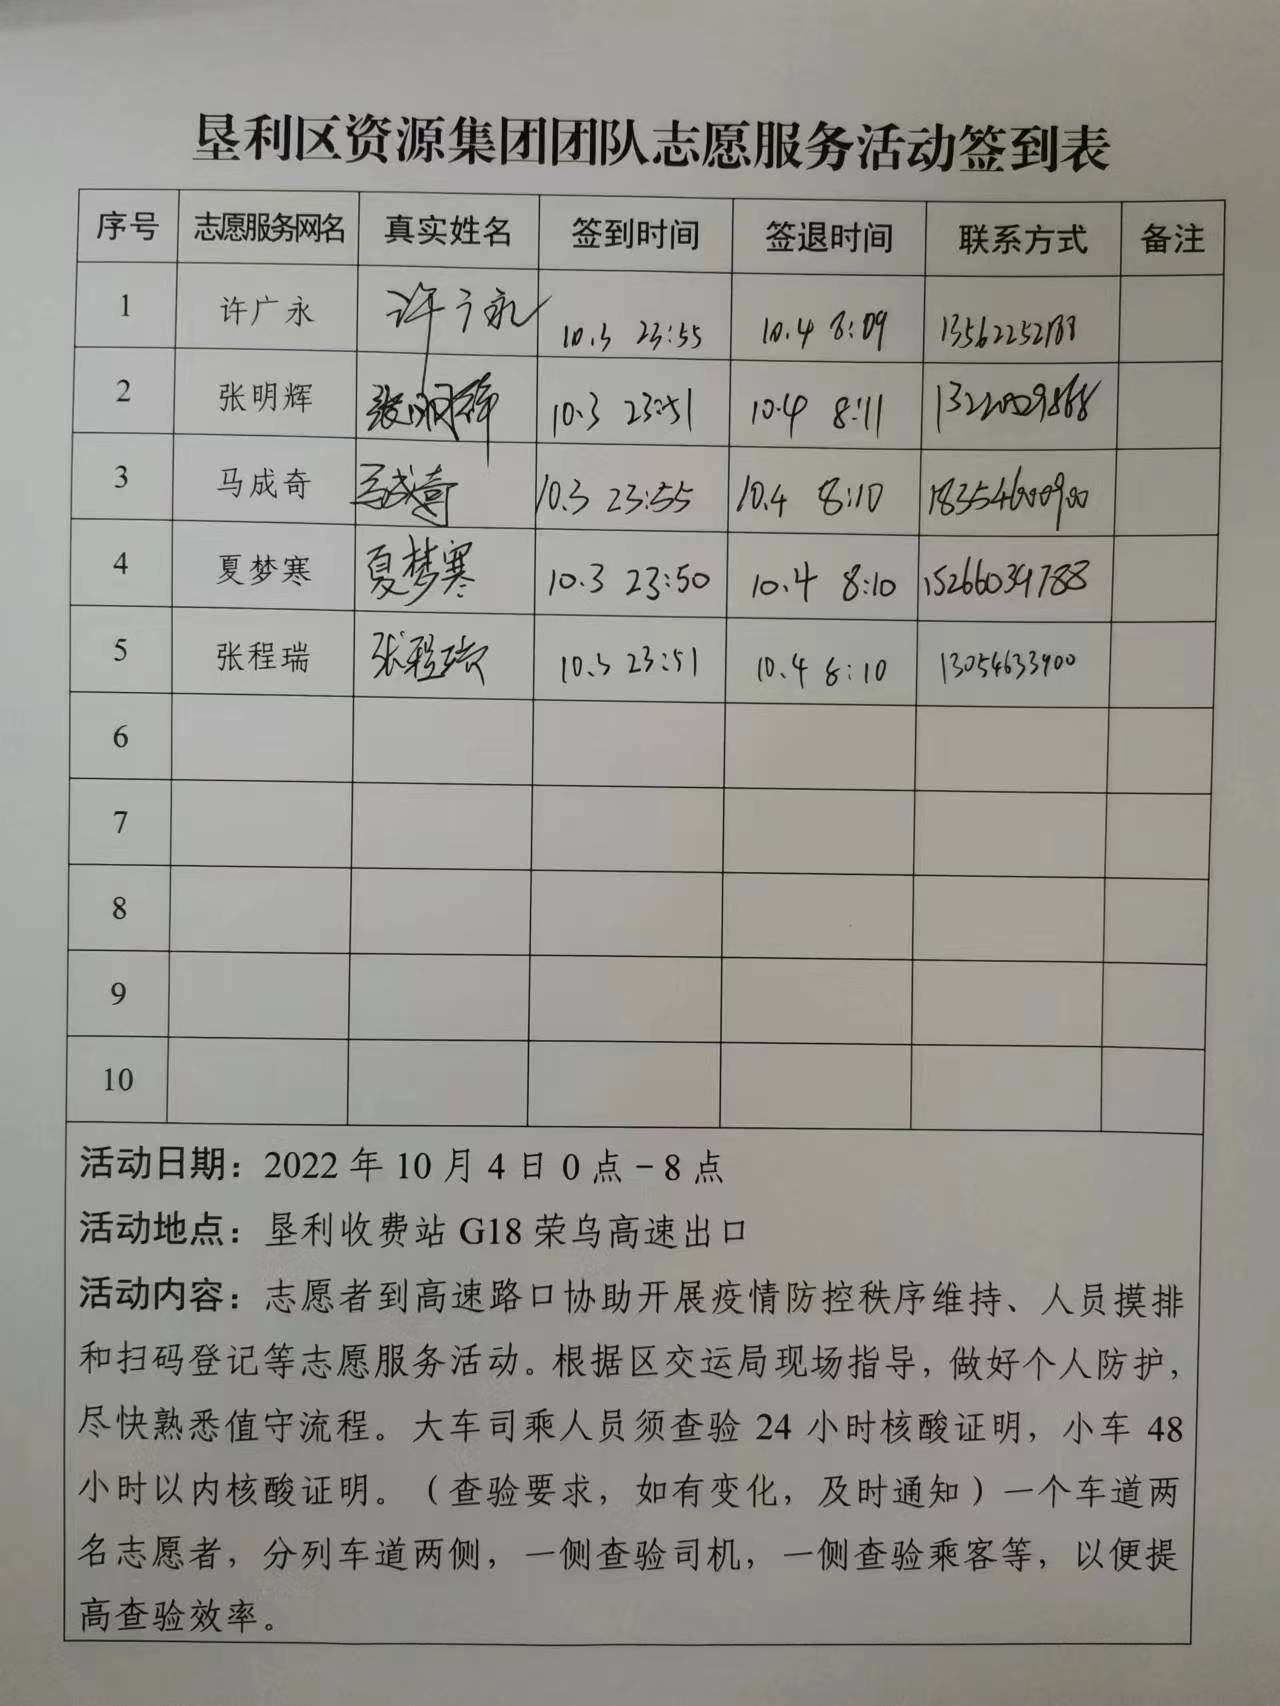 垦利区资源集团团队志愿服务活动签到表
序号 志愿服务网名 真实姓名 签到时间 签退时间 联系方式 备注
1 许广永 许广永 10.3 23:55 10.4 8:09 13562252188
2 张明辉 张明辉 10.3 23:51 10.4 8:11
3 马成奇 马成奇 10.3 23:55 10.4 8:10 18354600900
4 夏梦寒 夏梦寒 10.3 23:50 10.4 8:10 15266034788
5 张程瑞 张程瑞 10.3 23:51 10.4 8:10 13054633900
6
7
8
9
10
活动日期：2022 年 10 月 4 日 0 点－8 点
活动地点：垦利收费站 G18 荣乌高速出口
活动内容：志愿者到高速路口协助开展疫情防控秩序维持、人员摸排
和扫码登记等志愿服务活动。根据区交运局现场指导，做好个人防护，
尽快熟悉值守流程。大车司乘人员须查验 24 小时核酸证明，小车 48
小时以内核酸证明。（查验要求，如有变化，及时通知）一个车道两
名志愿者，分列车道两侧，一侧查验司机，一侧查验乘客等，以便提
高查验效率。